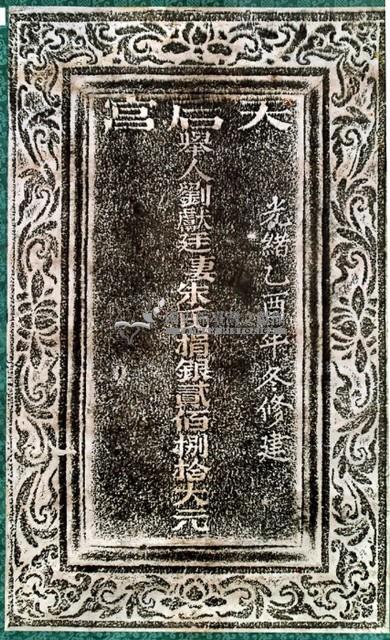 天后宮
光緒乙酉年冬修建
舉人劉獻廷妻朱氏捐銀貳佰捌拾大元